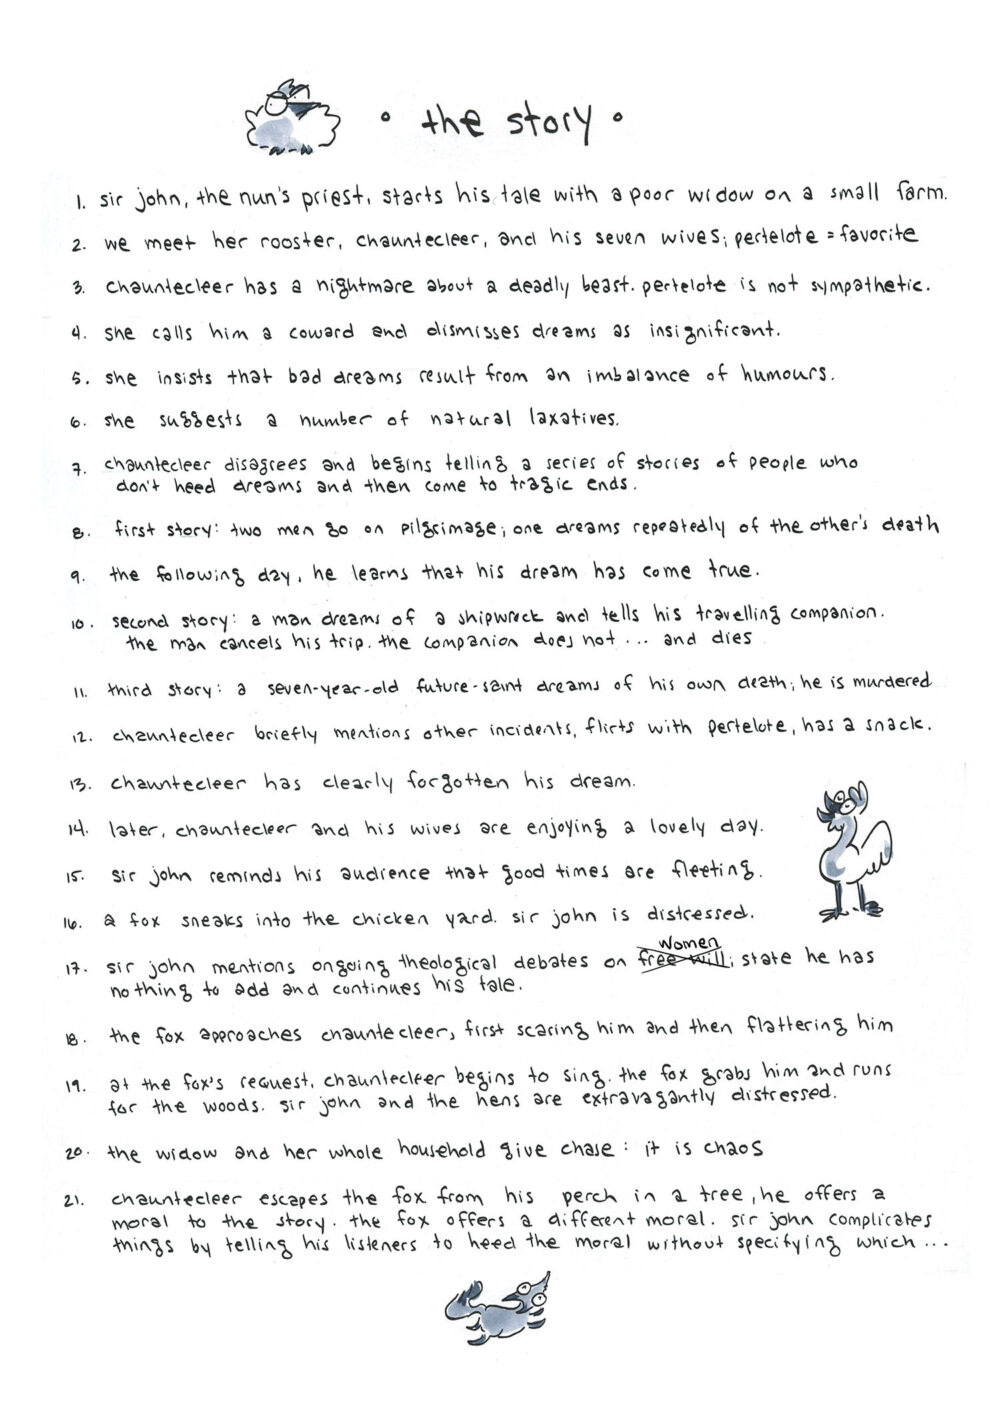 • the story •
1. sir john, the nun's priest, starts his tale with a poor widow on a small farm.
2. we meet her rooster, chauntecleer, and his seven wives; pertelote = favorite
3. chauntecleer has a nightmare about a deadly beast. pertelote is not sympathetic.
4. she calls him a coward and dismisses dreams as insignificant.
5. she insists that bad dreams result from an imbalance of humours.
6. she suggests a number of natural laxatives.
7. chauntecleer disagrees and begins telling a series of stories of people who
don't heed dreams and then come to tragic ends.
8. first story: two men go on pilgrimage; one dreams repeatedly of the other's death
9. the following day, he learns that his dream has come true.
10. second story: a man dreams of a shipwreck and tells his travelling companion.
the man cancels his trip. the companion does not ... and dies
11. third story: a seven-year-old future-saint dreams of his own death; he is murdered
12. chauntecleer briefly mentions other incidents, flirts with pertelote, has a snack.
13. chauntecleer has clearly forgotten his dream.
14. later, chauntecleer and his wives are enjoying a lovely day.
15. sir john reminds his audience that good times are fleeting.
16. a fox sneaks into the chicken yard. sir john is distressed.
women
17. sir john mentions ongoing theological debates on free will; state he has
nothing to add and continues his tale.
18. the fox approaches chauntecleer, first scaring him and then flattering him
19. at the fox's request, chauntecleer begins to sing. the fox grabs him and runs
for the woods. sir john and the hens are extravagantly distressed.
20. the widow and her whole household give chase: it is chaos
21. chauntecleer escapes the fox from his perch in a tree, he offers a
moral to the story. the fox offers a different moral. sir john complicates
things by telling his listeners to heed the moral without specifying which ...